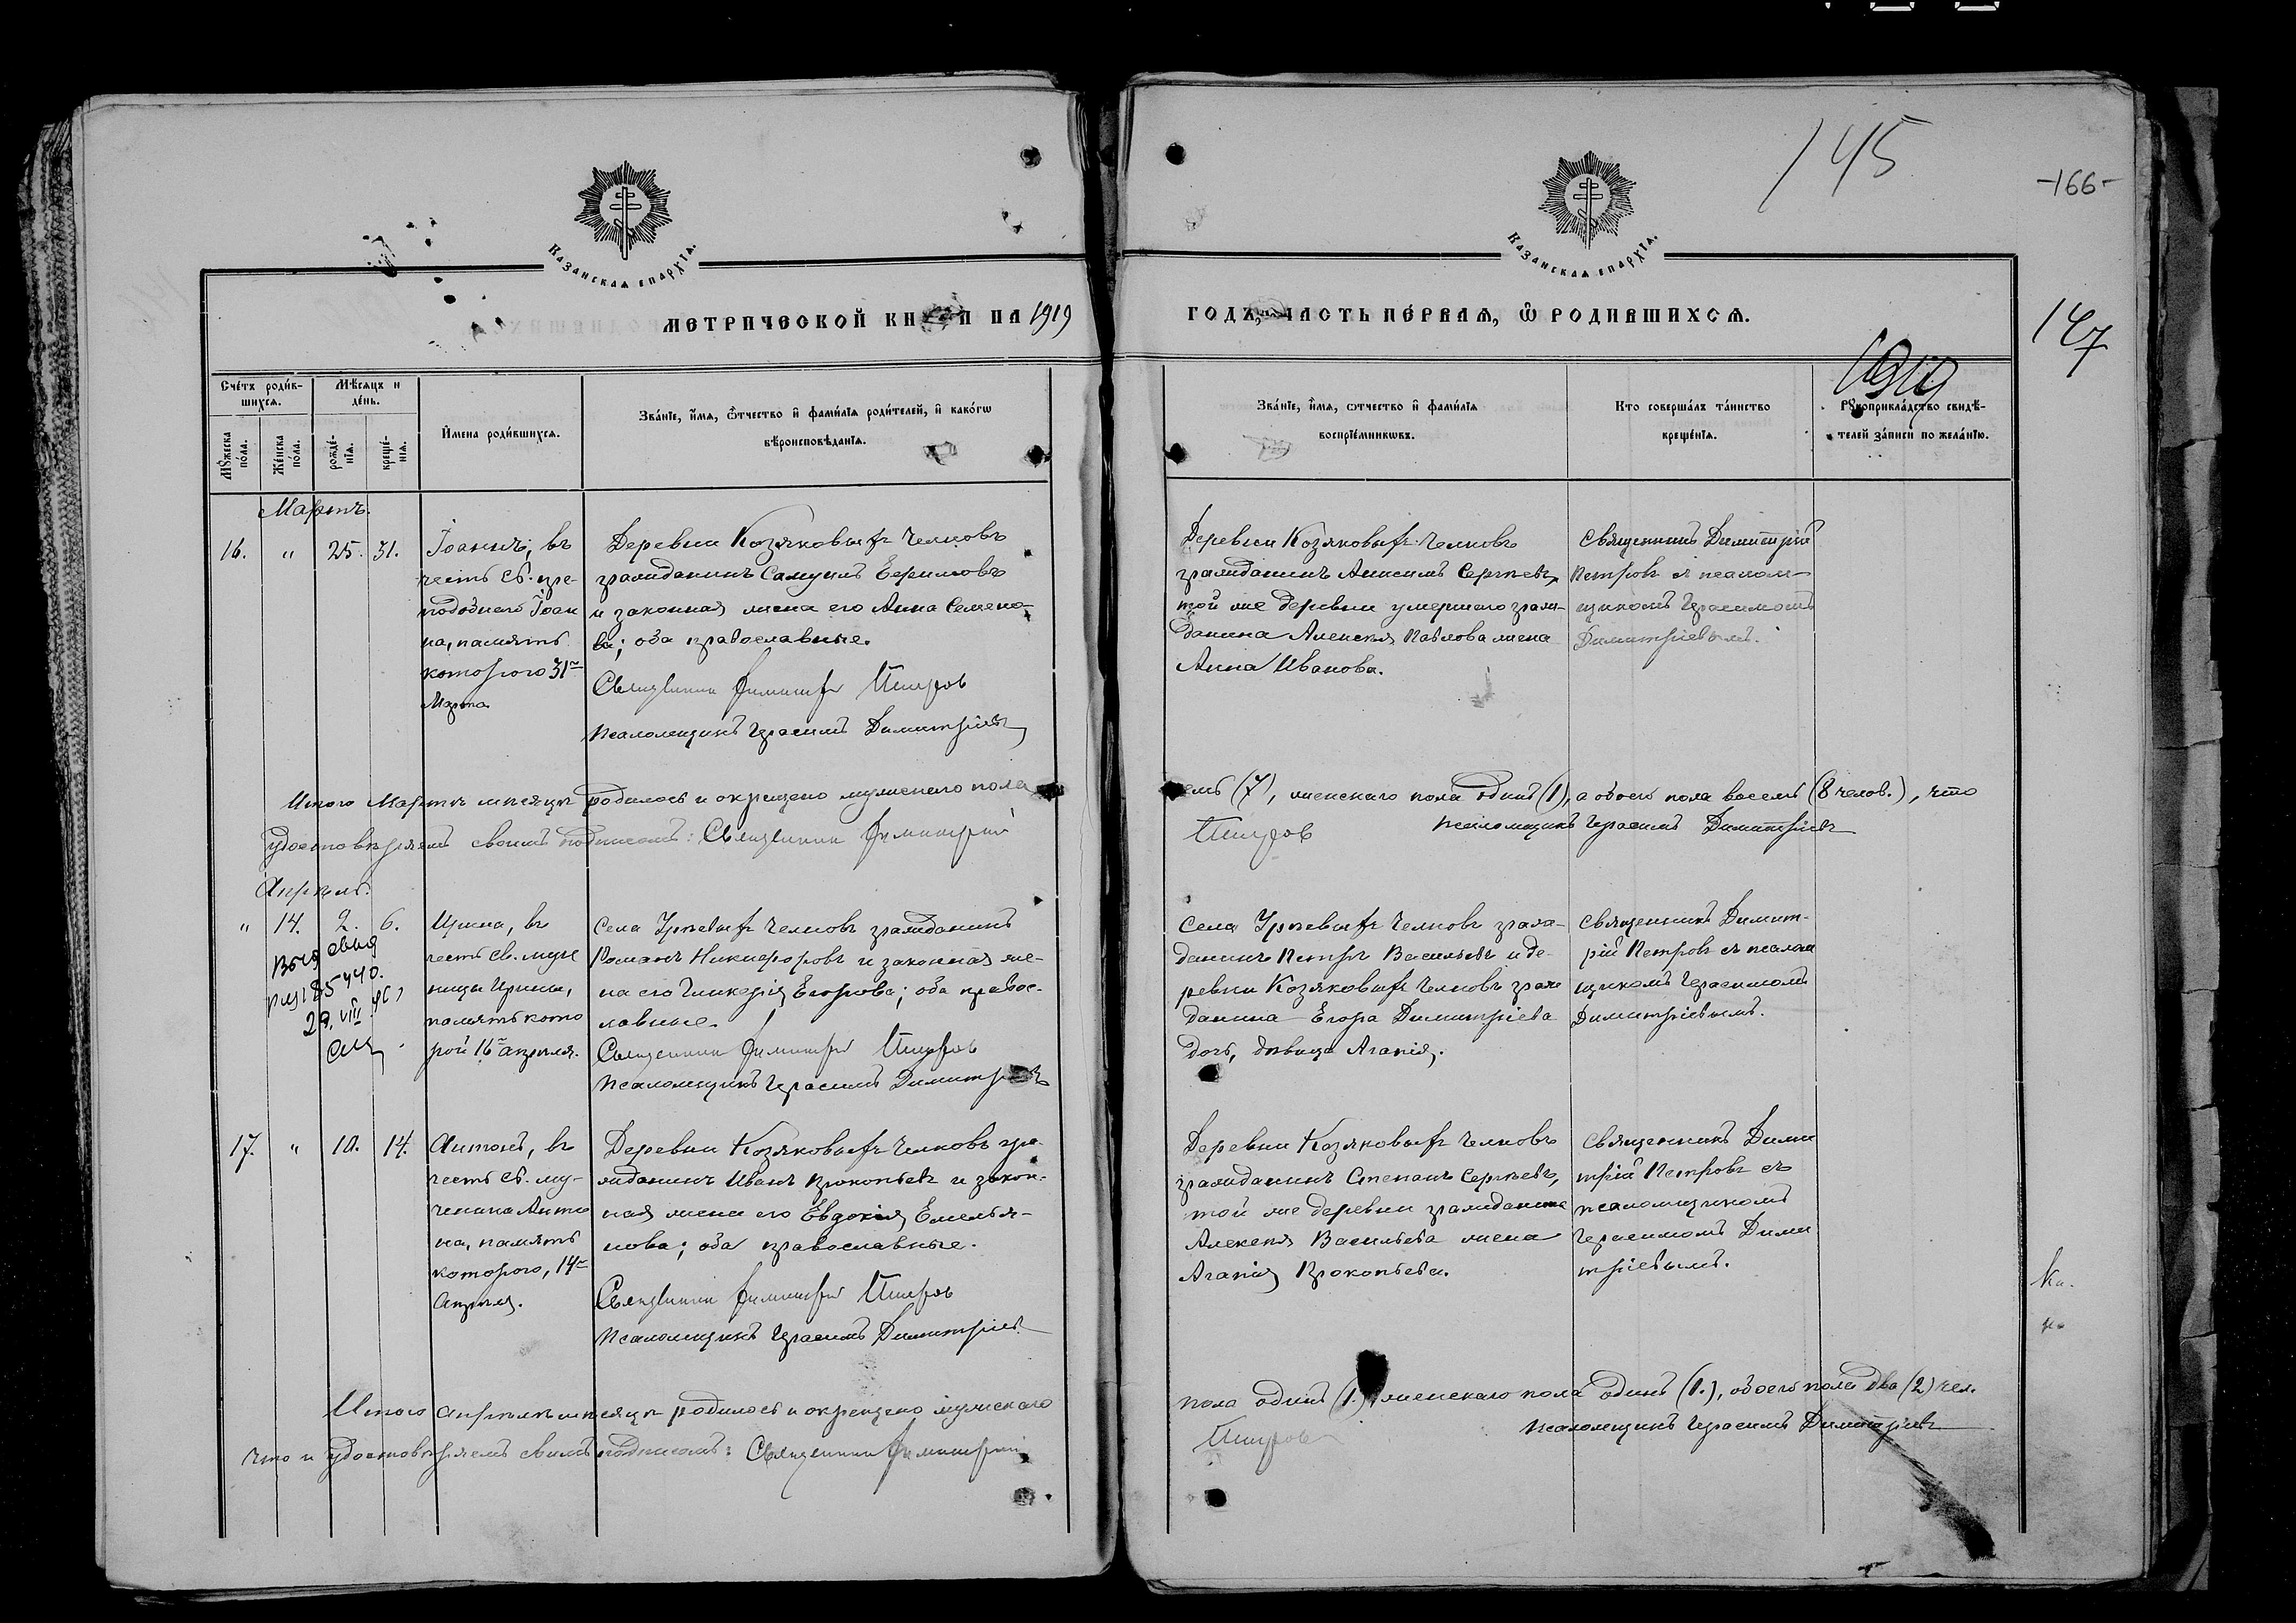 145
-166-
147
Казанская епархїѧ.
Казанская епархїѧ.
МЕТРИЧЕСКОЙ КНИГИ НА 1919
ГОДЪ, ЧАСТЬ ПЕРВАѦ, Ѿ РОДИВШИХСѦ.
1919
Счетъ родив-
шихсѧ.
Мѣсяцъ и
день.
Мꙋжеска
пола.
Женска
пола.
рожде-
нїѧ.
креще-
нїѧ.
Имена родившихсѧ.
Званїе, имѧ, ѿчество и фамилїѧ родителей, и какогѡ
вѣроисповѣданїѧ.
Званїе, имѧ, ѿчество и фамилїѧ
воспрїемникѡвъ.
Кто совершалъ таинство
крещенїѧ.
Рꙋкоприкладство свидѣ-
телей записи по желанїю.
Мартъ.
16. " 25. 31.
Іоаннъ, въ
честь св. пре-
подобнаго Іоан
на, память
котораго 31го
Марта.
Деревни Козяковыхъ Челновъ
гражданинъ Самуилъ Ефимовъ
и законная жена его Анна Семено-
ва; оба православные.
Священникъ Димитрій Петровъ
Псаломщикъ Герасимъ Димитріевъ
Деревни Козяковыхъ Челновъ
гражданинъ Анисимъ Сергѣевъ,
той же деревни умершаго граж-
данина Алексѣя Павлова жена
Анна Иванова.
Священникъ Димитрій
Петровъ съ псалом-
щикомъ Герасимомъ
Димитріевымъ.
Итого Мартѣ мѣсяцѣ родилось и окрещено мужскаго пола
емь (7), женскаго пола одинъ (1), а обоего пола восемь (8 челов.), что
удостовѣряемъ своимъ подписомъ: Священникъ Димитрій
Петровъ Псаломщикъ Герасимъ Димитріевъ
Апрѣль.
" 14. 2. 6.
Выд свид
29. VIII.
Ирина, въ
честь св. муче
ницы Ирины,
память кото
рой 16го апрѣля.
Села Урѣевыхъ Челновъ гражданинъ
Романъ Никифоровъ и законная же-
на его Гликерія Егорова; оба правос-
лавные.
Священникъ Димитрій Петровъ
Псаломщикъ Герасимъ Димитріевъ
Села Урѣевыхъ Челновъ граж-
данинъ Петръ Васильевъ и де-
ревни Козяковыхъ Челновъ граж
данина Егора Димитріева
дочь, дѣвица Агапія.
Священникъ Димит-
рій Петровъ съ псалом
щикомъ Герасимомъ
Димитріевымъ.
17. " 10. 14.
Антонъ, въ
честь св. му-
ченика Анто
на, память
котораго, 14го
Апрѣля.
Деревни Козяковыхъ Челновъ гра-
жданинъ Иванъ Прокопьевъ и закон-
ная жена его Евдокія Емелья-
нова; оба православные.
Священникъ Димитрій Петровъ
Псаломщикъ Герасимъ Димитріевъ
Деревни Козяковыхъ Челновъ
гражданинъ Степанъ Сергѣевъ,
той же деревни гражданина
Алексѣя Васильева жена
Агапія Прокопьева.
Священникъ Дими
трій Петровъ съ
псаломщикомъ
Герасимомъ Дими
тріевымъ.
Итого апрѣлѣ мѣсяцѣ родилось и окрещено мужскаго
пола одинъ (1.) женскаго пола одинъ (1.), обоего пола два (2) чел.
что и удостовѣряемъ своимъ подписомъ: Священникъ Димитрій
Петровъ Псаломщикъ Герасимъ Димитріевъ